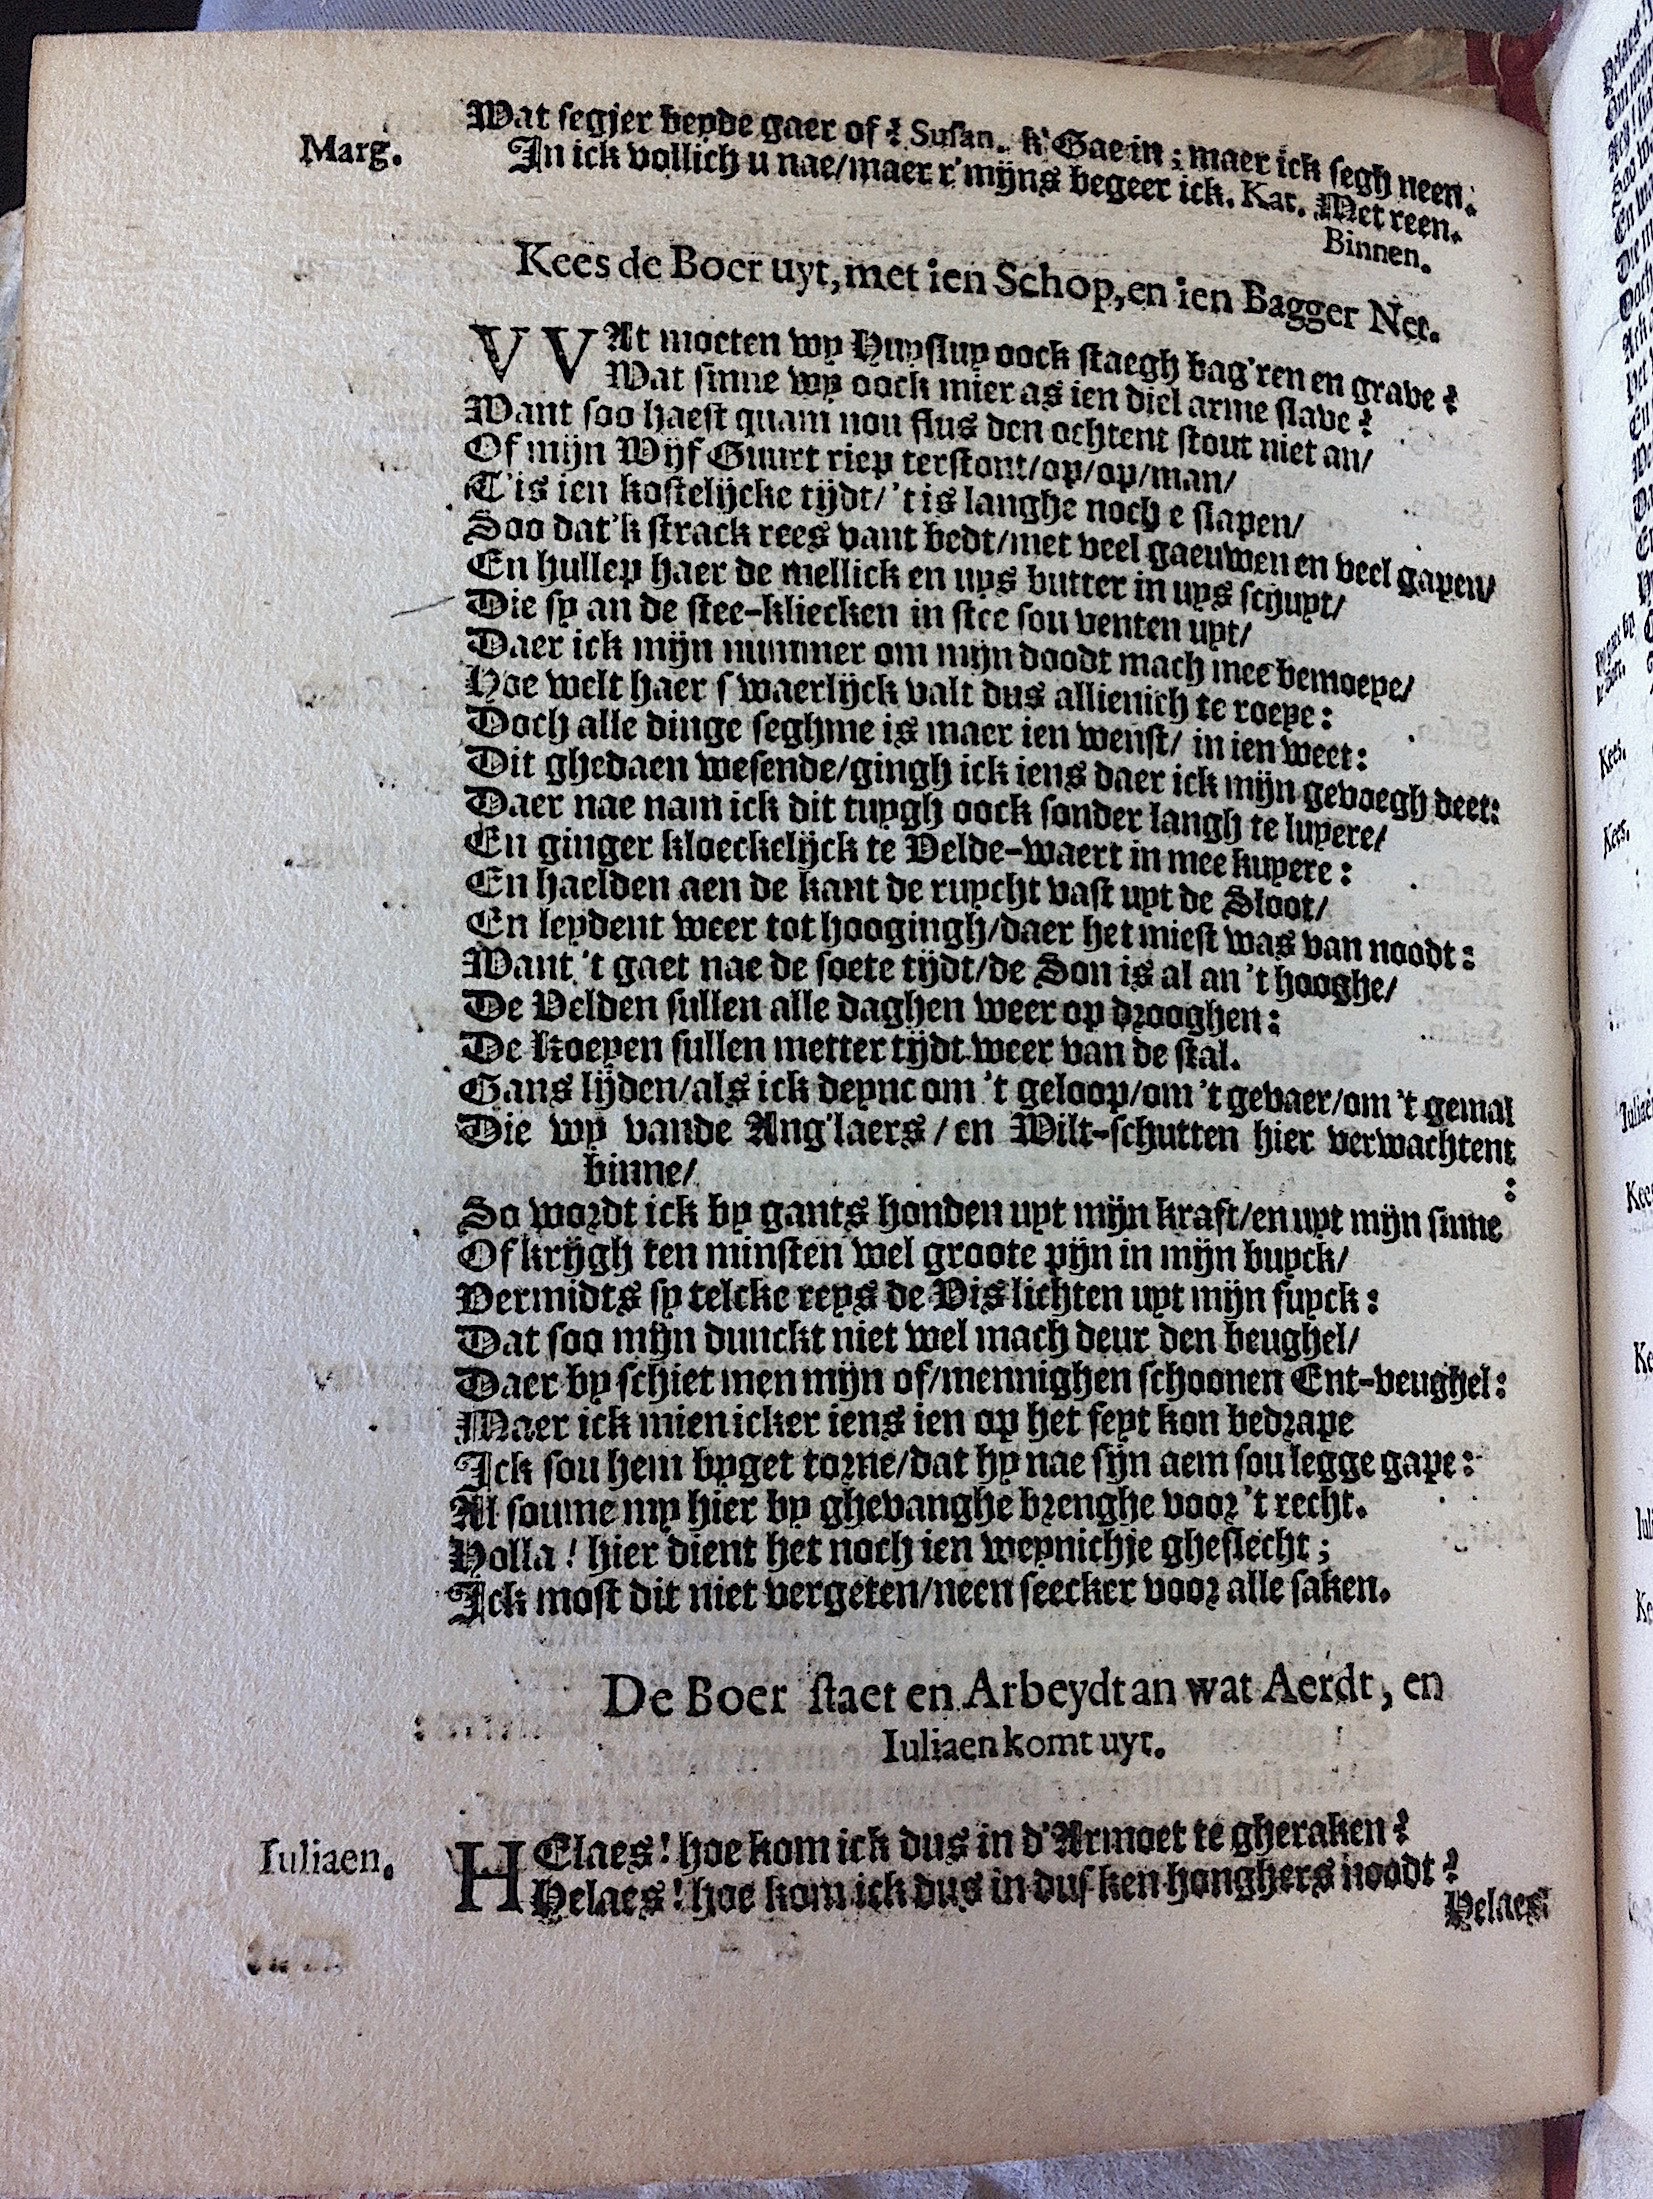 Wat segjer beyde gaer of? Susan. k' Gae in; maer ick segh neen.
Marg. In ick vollich u nae/maer r'mijns begeer ick. Kat. Met reen.
Binnen.
Kees de Boer uyt, met ien Schop, en ien Bagger Net.
VVAt moeten wy Huysluy oock staegh bag'ren en grave?
Wat sinne wy oock mier as ien diel arme slave?
Want soo haest quam nou flus den ochtent stout niet an/
Of mijn Wijf Guurt riep terstont/op/op/man/
T'is ien kostelijcke tijdt/'t is langhe noch e slapen/
Soo dat'k strack rees vant bedt/met veel gaeuwen en veel gapen/
En hullep haer de mellick en uys butter in uys schuyt/
Die sy an de stee-kliecken in stee sou venten uyt/
Daer ick mijn nummer om mijn doodt mach mee bemoeye/
Hoe welt haer swaerlijck valt dus allienich te roeye:
Doch alle dinge seghme is maer ien wenst/ in ien weet:
Dit ghedaen wesende/gingh ick iens daer ick mijn gevoegh deet:
Daer nae nam ick dit tuygh oock sonder langh te luyere/
En ginger kloeckelijck te Velde-waert in mee kuyere:
En haelden aen de kant de ruycht vast uyt de Sloot/
En leydent weer tot hoogingh/daer het miest was van noodt:
Want 't gaet nae de soete tijdt/de Son is al an 't hooghe/
De Velden sullen alle daghen weer op drooghen:
De Koeyen sullen metter tijdt weer van de stal.
Gans lijden/als ick deync om 't geloop/om 't gevaer/om 't gemal
Die wy vande Ang'laers / en Wilt-schutten hier verwachtent
binne/ :
So wordt ick by gants honden uyt mijn kraft/en uyt mijn sinne
Of krijgh ten minsten wel groote pijn in mijn buyck/
Vermidts sy telcke reys de Vis lichten uyt mijn fuyck:
Dat soo mijn dunckt niet wel mach deur den beughel/
Daer by schiet men mijn of/mennighen schoonen Ent-veughel:
Maer ick mienicker iens ien op het feyt kon bedrape
Ick sou hem byget torne/dat hy nae sijn aem sou legge gape:
Al soume my hier by ghevanghe brenghe voor 't recht.
Holla! hier dient het noch ien weynichje gheslecht;
Ick most dit niet vergeten/neen seecker voor alle saken.
De Boer staet en Arbeydt an wat Aerdt, en
Iuliaen komt uyt.
Iuliaen. HElaes! hoe kom ick dus in d'Armoet te gheraken?
Helaes! hoe kom ick dus in dusken honghers noodt?
Helaes!